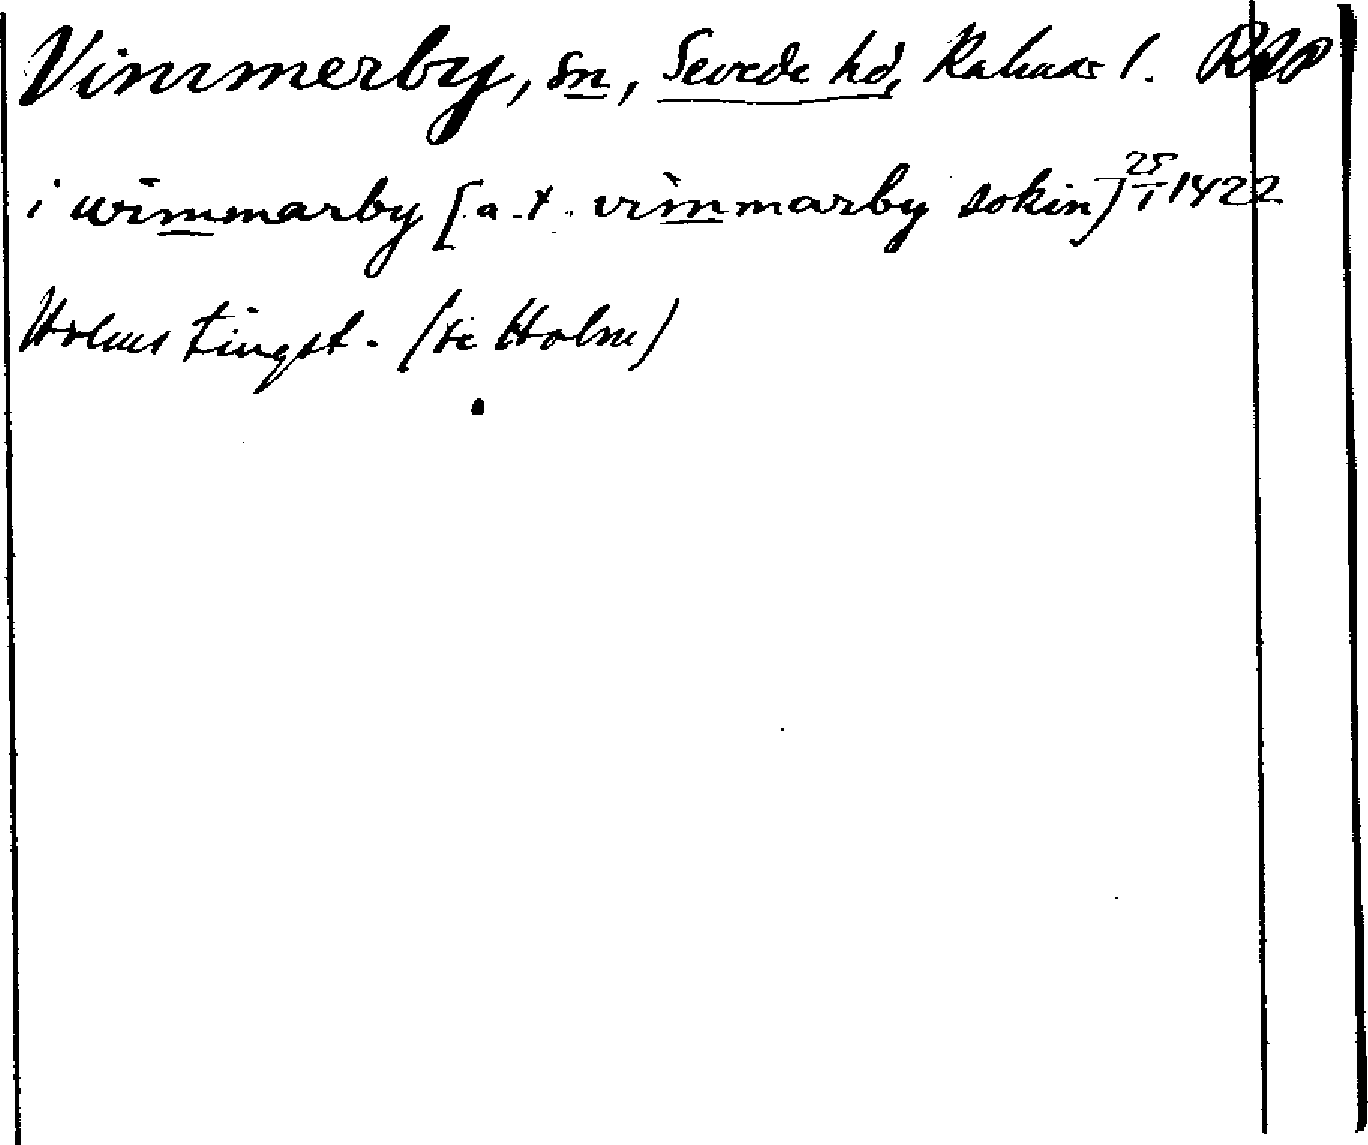 Vimmerby, sn, Sevede hd, Kalmar l.
i wimmarby [a. t. vimmarby sokin] 25/1 1422
Holms tingst. (se Holm)